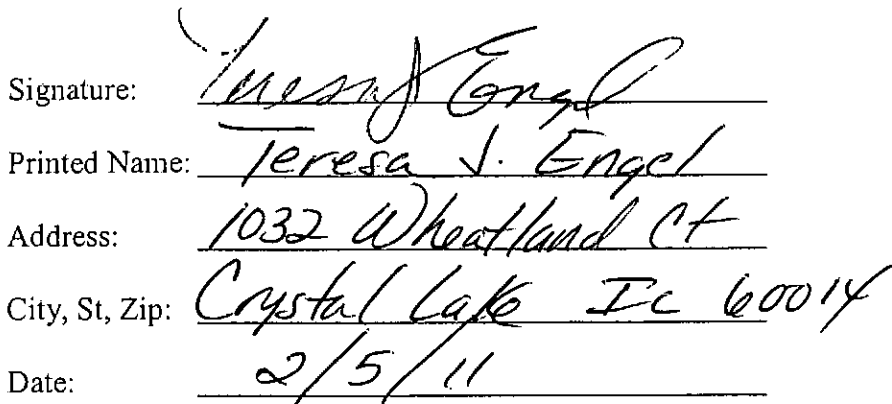 Signature: Teresa J Engel
Printed Name: Teresa J. Engel
Address: 1032 Wheatland Ct
City, St, Zip: Crystal Lake IL 60014
Date: 2/5/11